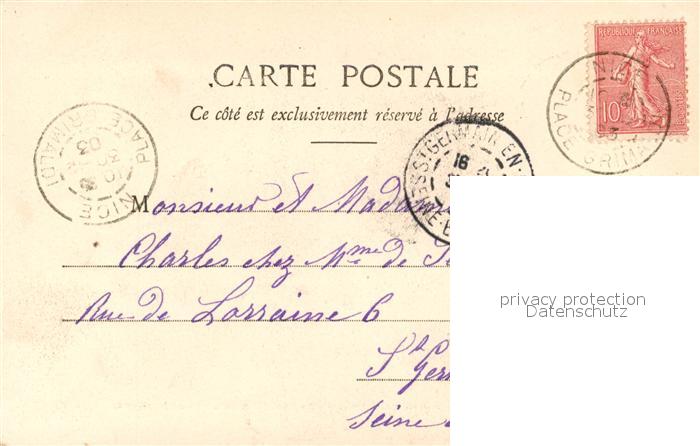 RÉPUBLIQUE FRANÇAISE
10
CARTE POSTALE
Ce côté est exclusivement réservé à l'adresse
NICE
PLACE GRIMALDI
03
PLACE GRIM
ST GERMAIN EN
16
Monsieur et Madame
Charles chez Mme de
Rue de Lorraine 6
St Ger
Seine
privacy protection
Datenschutz